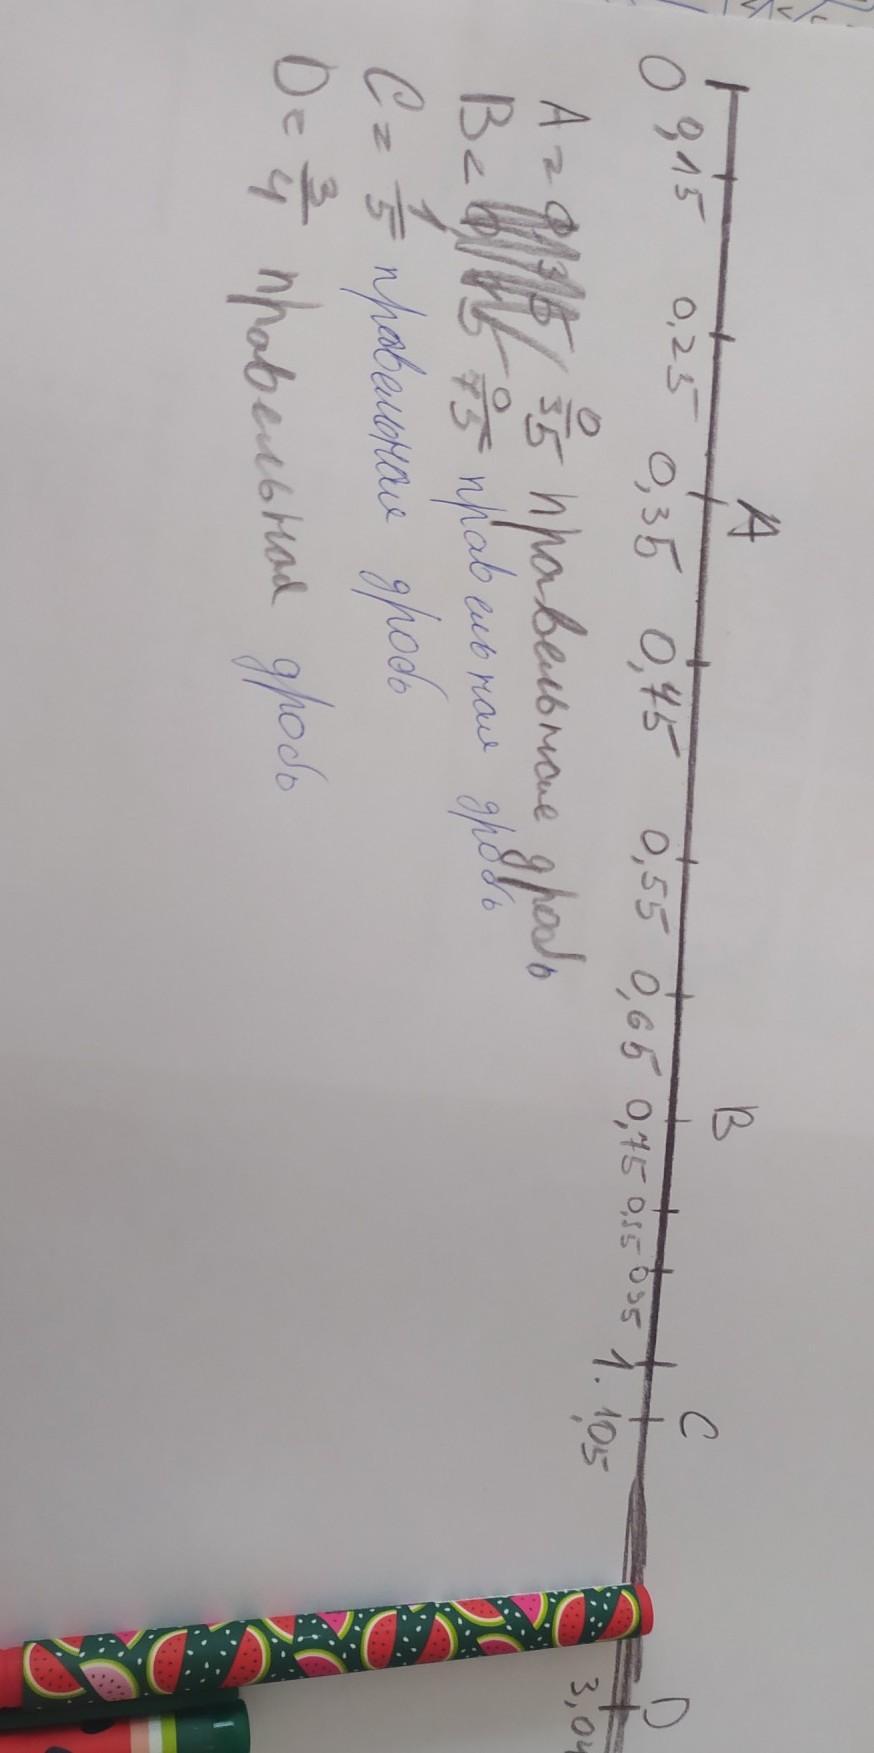 A B C D
0 0,15 0,25 0,35 0,45 0,55 0,65 0,75 0,85 0,95 1. 1,05 3,04
A = 0/35 правельная дробь
B = 0/75 правельная дробь
C = 1/5 правельная дробь
D = 3/4 правельная дробь